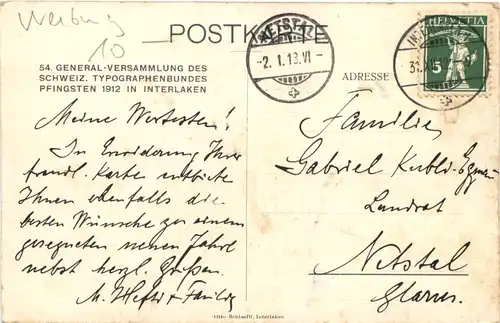 Werbung
10
POSTKARTE
NETSTAL
-2.I.13.VI-
INTERLAKEN
31.XII.12
HELVETIA
5
54. GENERAL-VERSAMMLUNG DES
SCHWEIZ. TYPOGRAPHENBUNDES
PFINGSTEN 1912 IN INTERLAKEN
ADRESSE
Meine Wertesten!
In Erwiderung Ihrer
frendl. Karte entbiete
Ihnen ebenfalls die
besten Wünsche zu einem
gesegneten neuen Jahre
nebst herzl. Grüßen.
M. Hefti & Familie
Familie
Gabriel Kubli-
Landrat
Netstal
Glarus.
Otto Interlaken